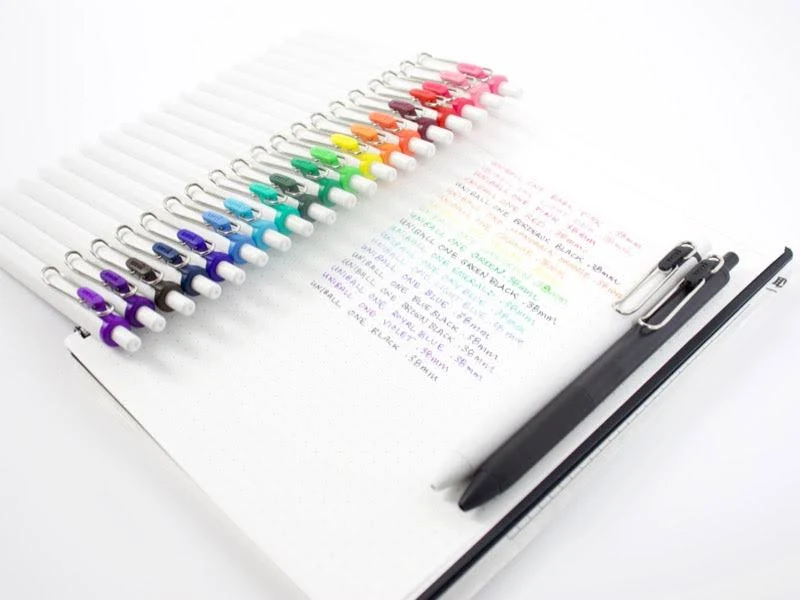 UNIBALL ONE PINK .38mm
UNIBALL ONE RED .38mm
UNIBALL ONE BORDEAUX BLACK .38mm
UNIBALL ONE ORANGE
UNIBALL ONE GREEN .38mm
UNIBALL ONE GREEN BLACK .38mm
UNIBALL ONE EMERALD .38mm
UNIBALL ONE LIGHT BLUE .38mm
UNIBALL ONE BLUE .38mm
UNIBALL ONE BLUE BLACK .38mm
UNIBALL ONE BROWN BLACK .38mm
UNIBALL ONE ROYAL BLUE .38mm
UNIBALL ONE VIOLET .38mm
UNIBALL ONE BLACK .38mm